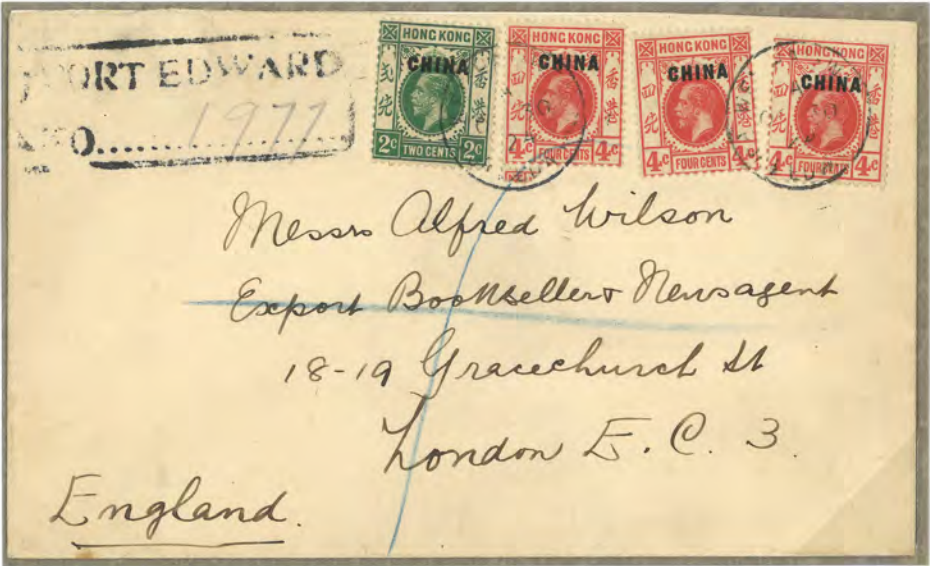 PORT EDWARD
1977
HONG KONG
CHINA
2c TWO CENTS 2c
HONG KONG
CHINA
香港
四先
4c FOUR CENTS 4c
HONG KONG
CHINA
四先
4c FOUR CENTS 4c
HONG KONG
CHINA
香港
四先
4c FOUR CENTS 4c
Messrs Alfred Wilson
Export Booksellers & Newsagent
18-19 Gracechurch St
London E. C. 3.
England.